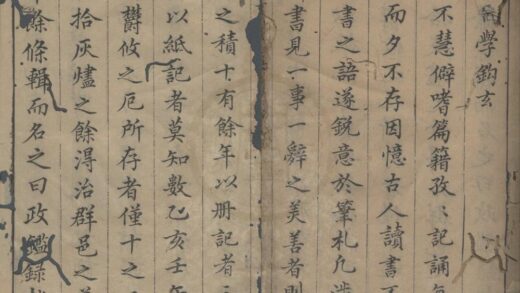 學鈎玄
不慧僻嗜篇籍孜〻記誦
而夕不存因憶古人讀書不
書之語遂銳意於筆札凡涉
書見一事一辭之美善者則
之積十有餘年以册記者
以紙記者莫知數乙亥壬
欝攸之厄所存者僅十之
拾灰燼之餘淂治群邑之
餘條輯而名之曰政鑑錄